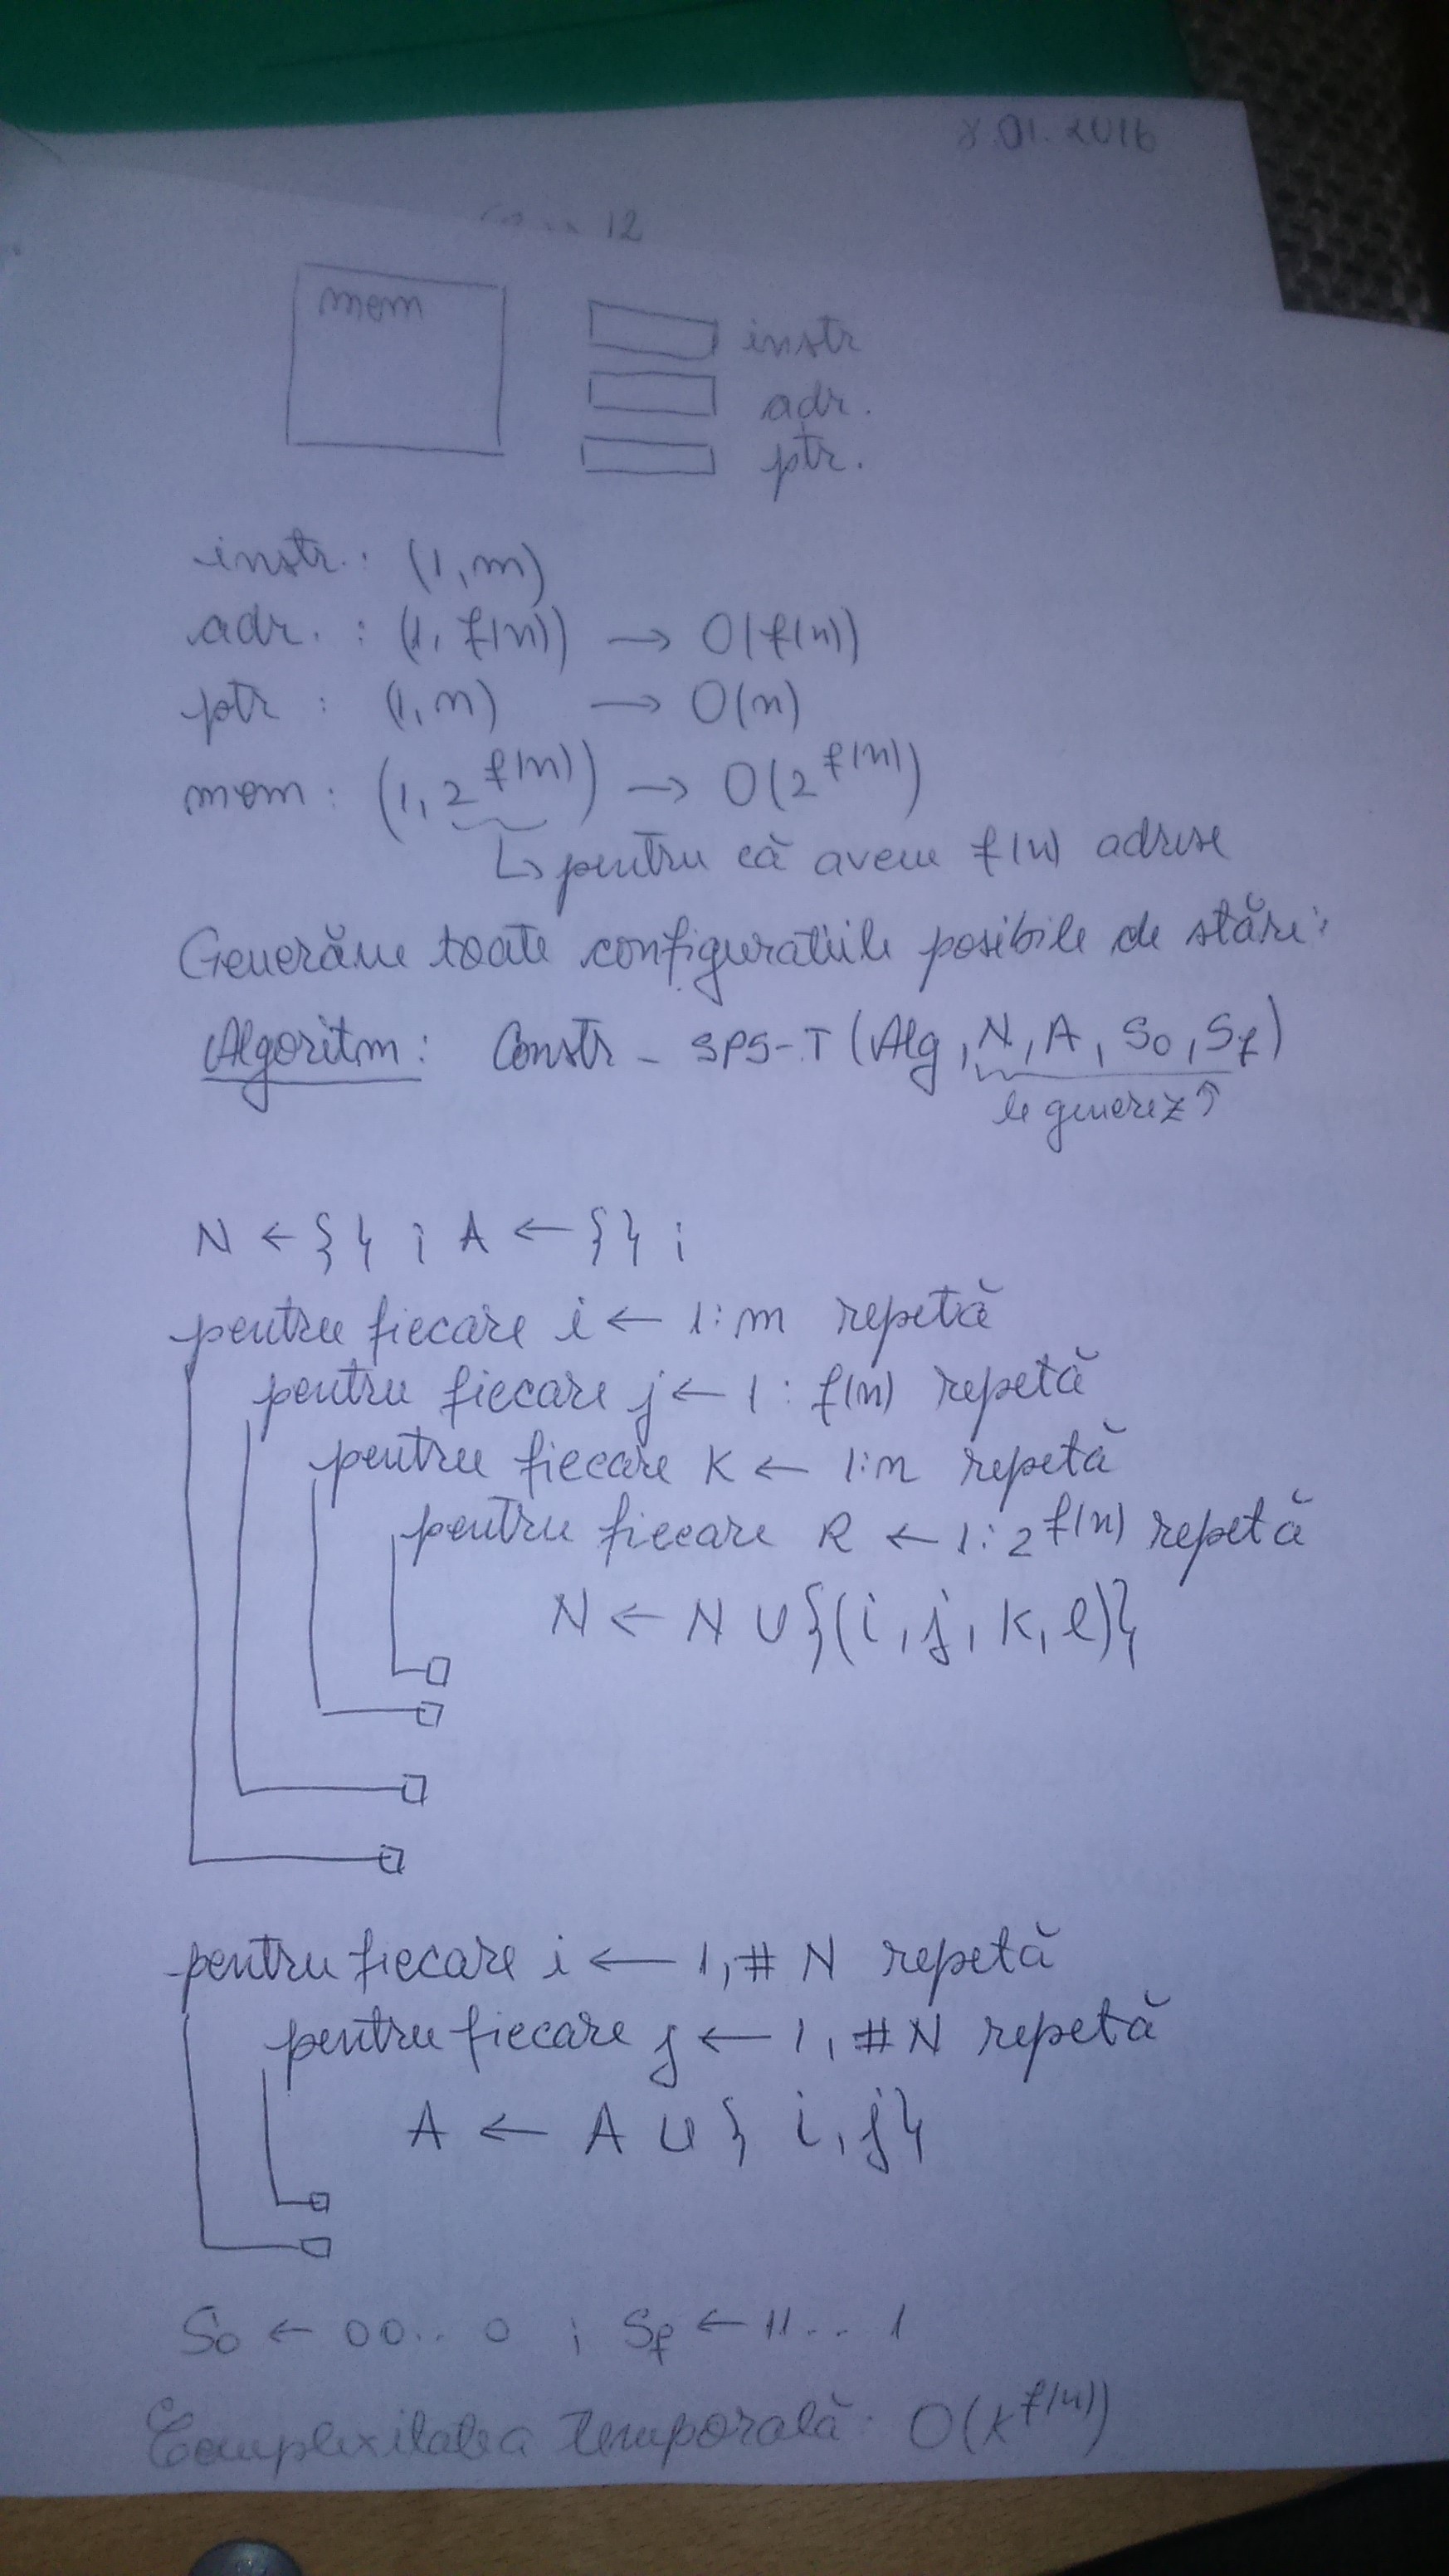 8.01.2016
12
mem
instr
adr.
ptr.
instr. : (1, m)
adr. : (1, f(n)) → O(f(n))
ptr : (1, n) → O(n)
mem : (1, 2^f(n)) → O(2^f(n))
↳ pentru că avem f(n) adrese
Generăm toate configuratiile posibile de stări:
Algoritm: Constr - SPS-T (Alg, N, A, S₀, Sf)
le generez ↑
N ← {} ; A ← {} ;
pentru fiecare i ← 1:m repetă
pentru fiecare j ← 1: f(n) repetă
pentru fiecare K ← 1:n repetă
pentru fiecare R ← 1:2^f(n) repetă
N ← N ∪ {(i, j, K, l)}
pentru fiecare i ← 1, # N repetă
pentru fiecare j ← 1, #N repetă
A ← A ∪ { i, j}
S₀ ← 00.. 0 ; Sf ← 11... 1
Complexitatea temporală: O(K^f(n))